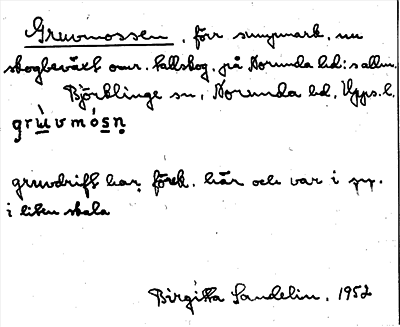 Gruvmossen, förr sumpmark, nu
skogbeväxt omr. tallskog, på Norunda hd:s allm.
Björklinge sn, Norunda hd, Upps. l.
grùvmósn̥
gruvdrift har förek. här och var i
i liten skala
Birgitta Sandelin, 1952